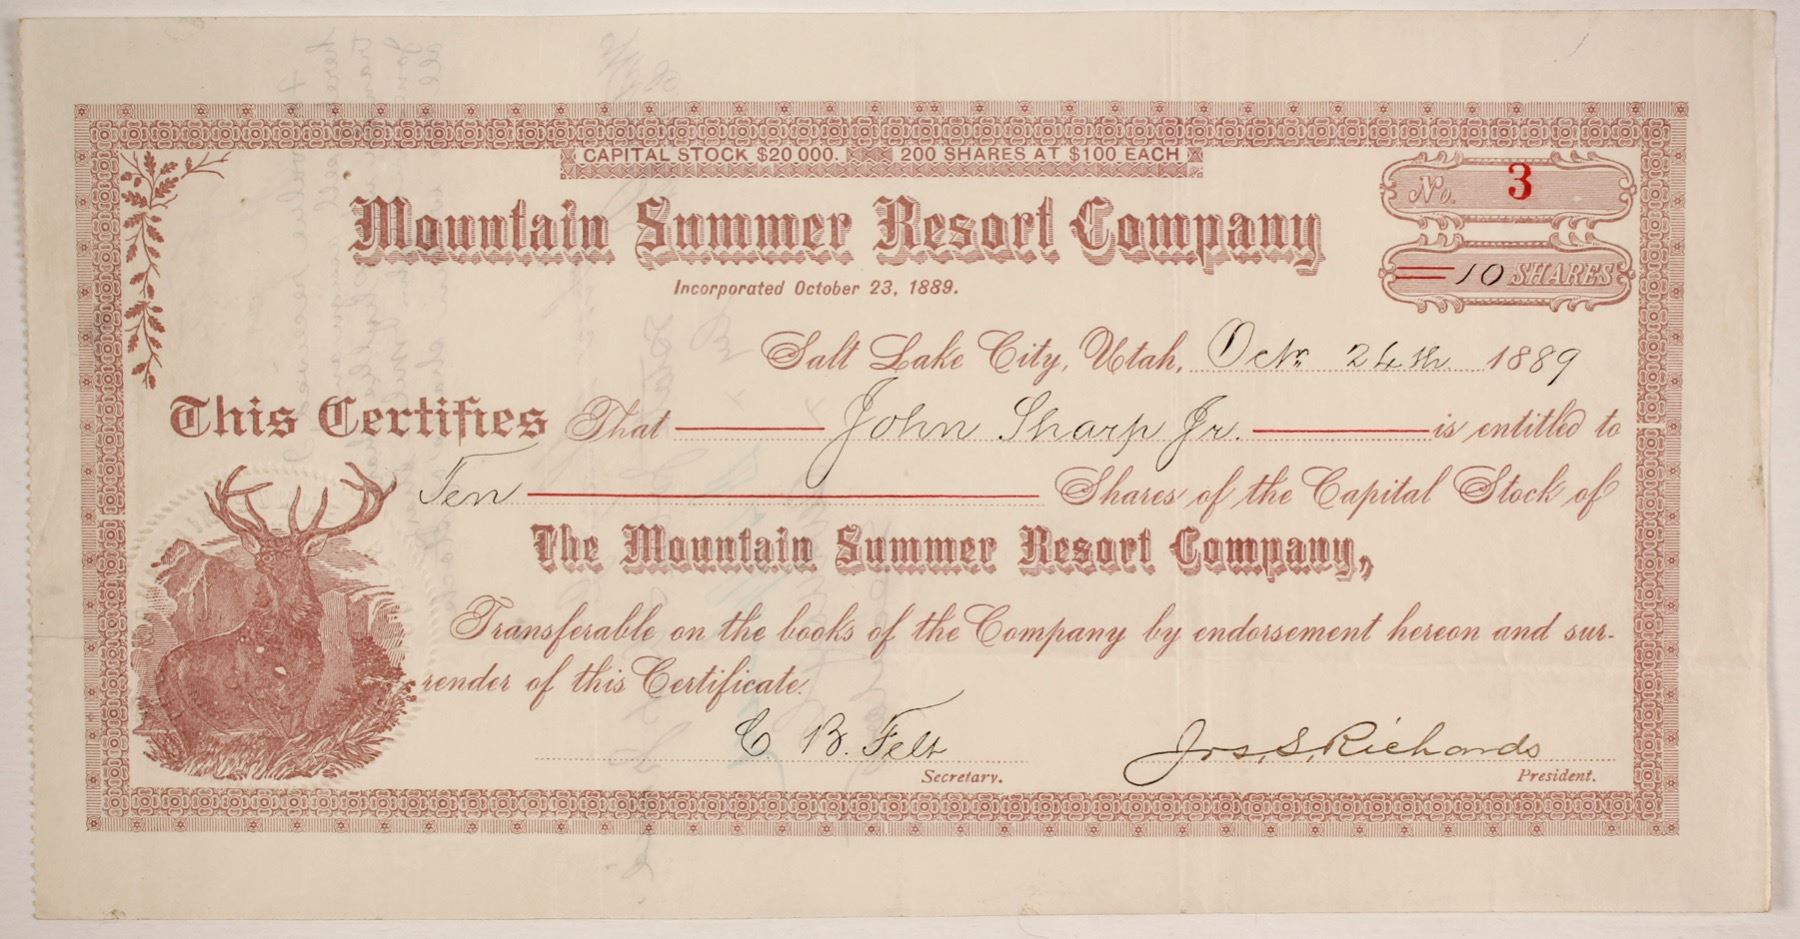 CAPITAL STOCK $20 000. 200 SHARES AT $100 EACH
No. 3
Mountain Summer Resort Company
10 SHARES
Incorporated October 23, 1889.
Salt Lake City, Utah, Octr 24th 1889
This Certifies That John Sharp Jr. is entitled to
Ten Shares of the Capital Stock of
The Mountain Summer Resort Company,
Transferable on the books of the Company by endorsement hereon and sur-
render of this Certificate.
C. B. Felt Jos. S. Richards
Secretary. President.